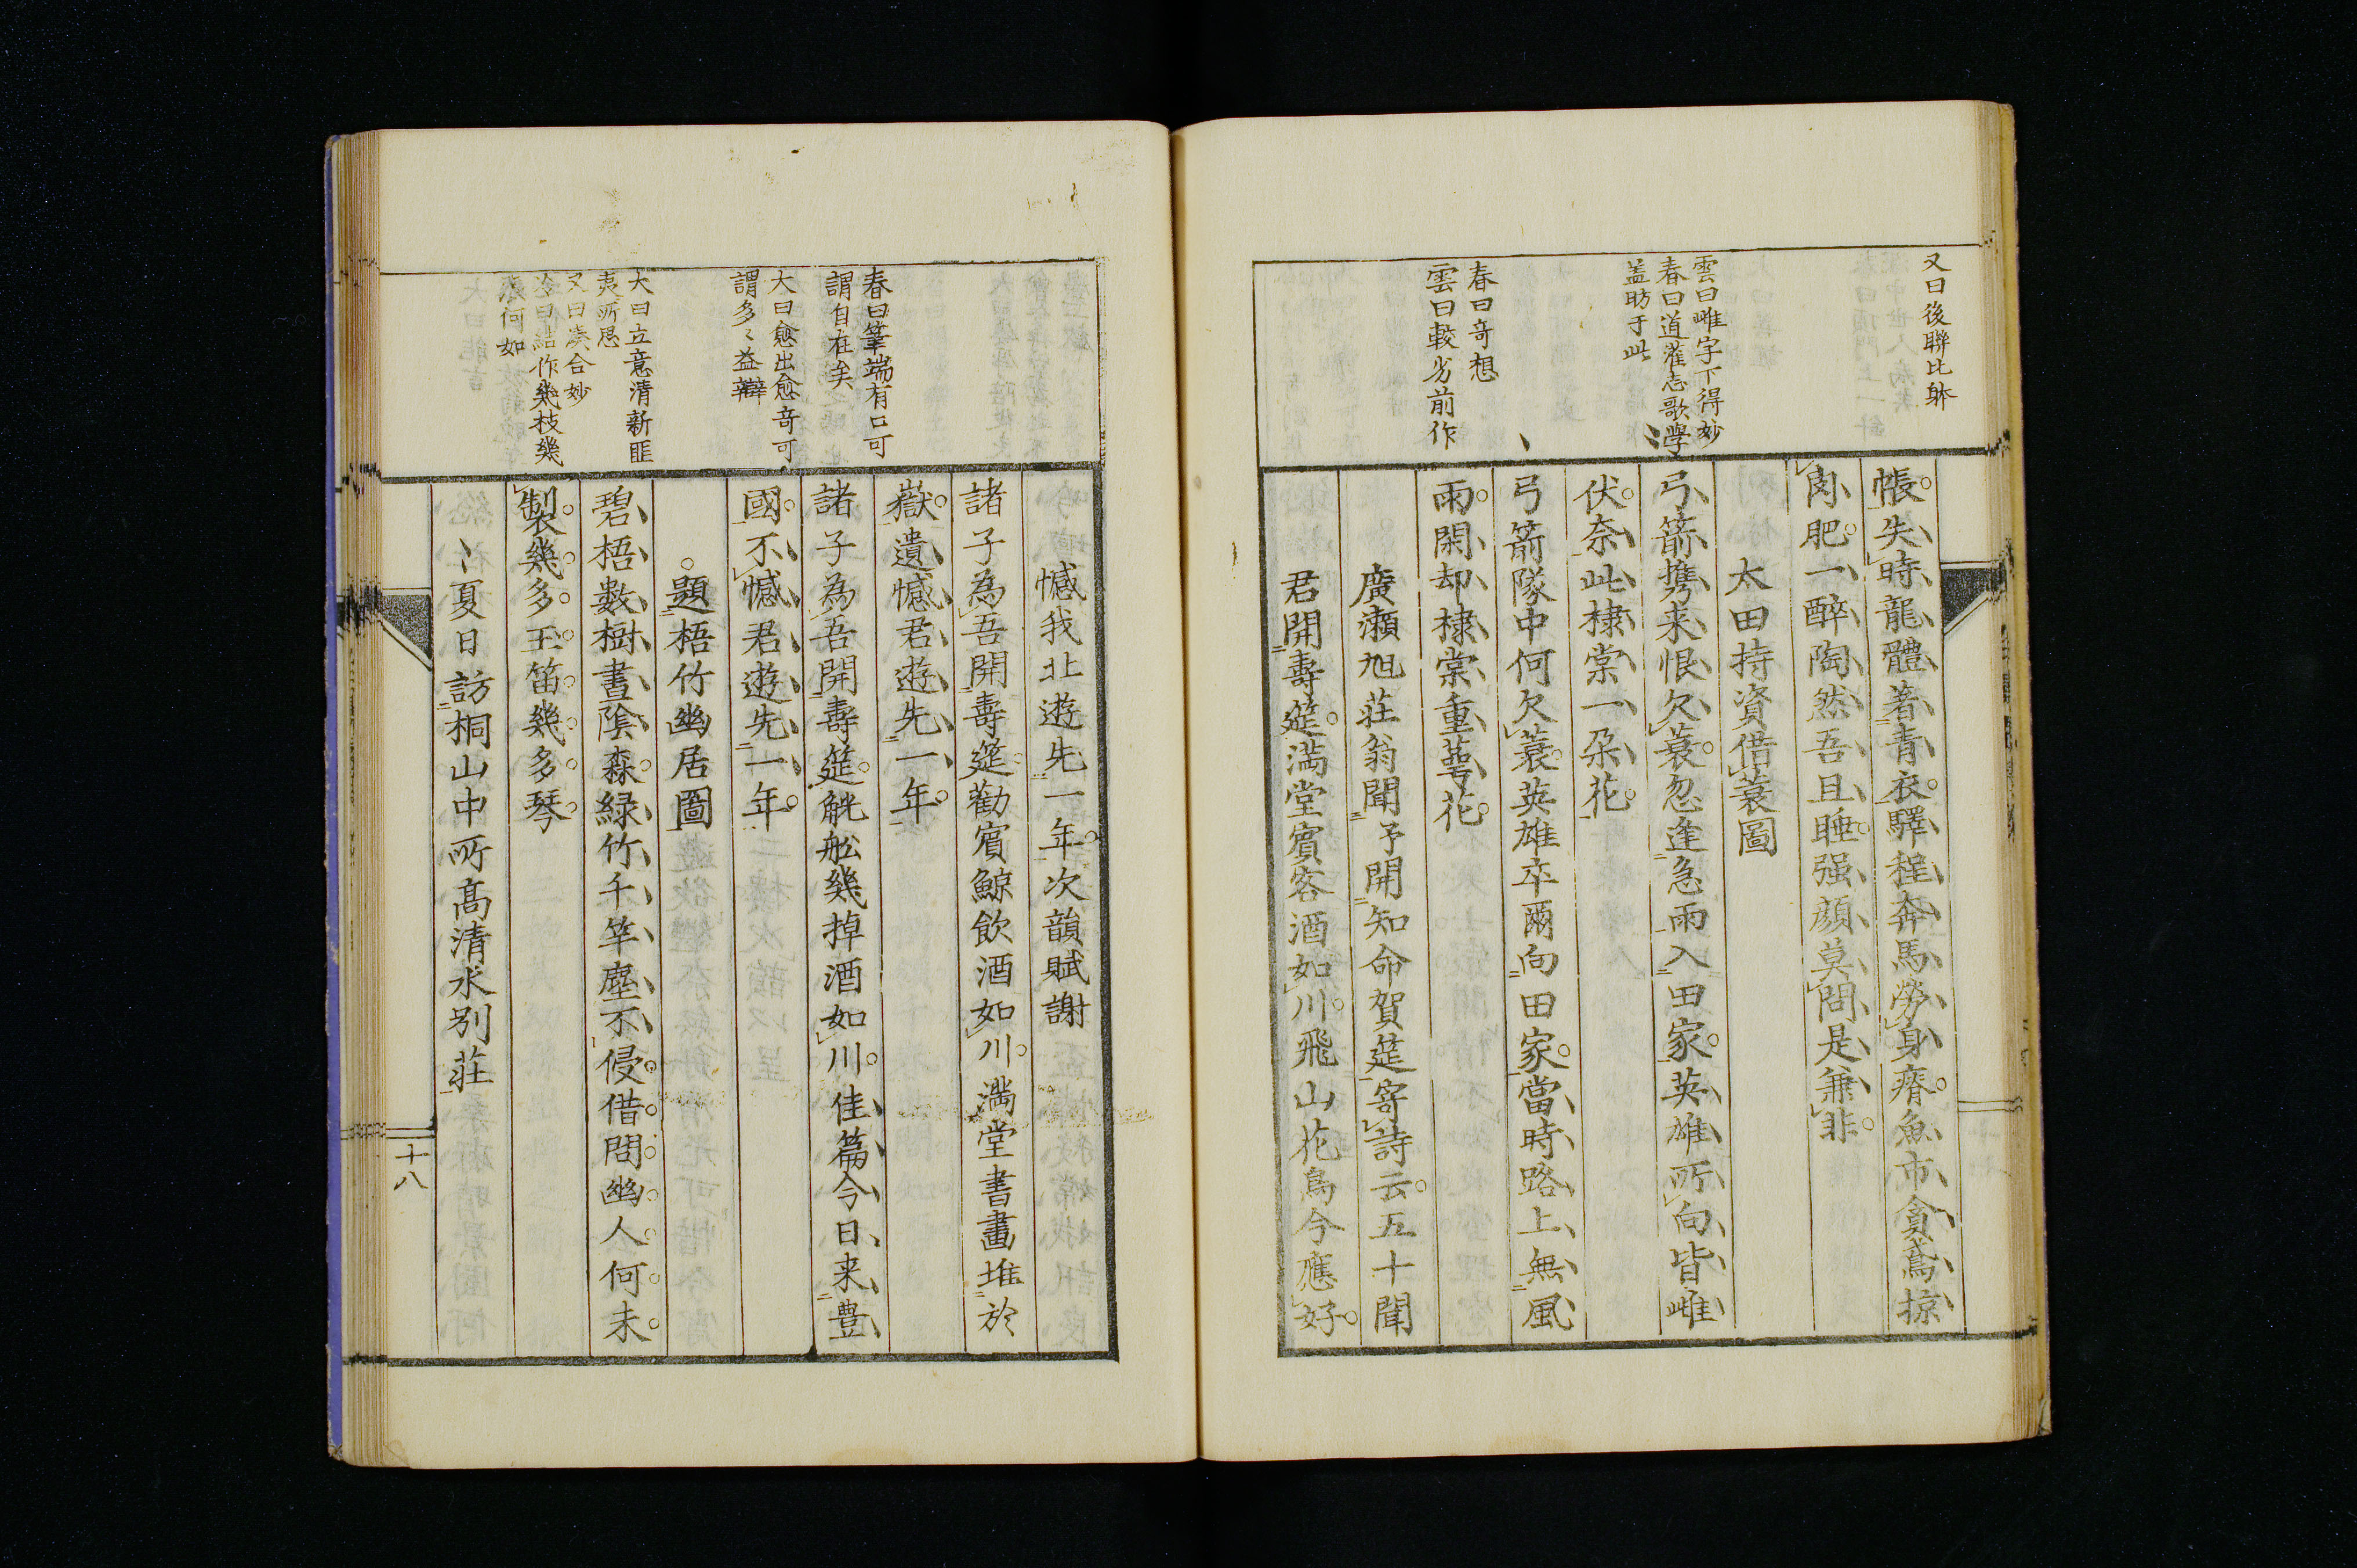 又曰後聯比躰
雲曰雌字下得妙
春曰道灌志歌學
盖昉于此
春曰奇想
雲曰較劣前作
帳失時龍體著青衣驛程奔馬勞身瘠魚市貪鳶掠
肉肥一醉陶然吾且睡强顔莫問是兼非
太田持資借蓑圖
弓箭携来恨欠蓑忽逢急雨入田家英雄所向皆雌
伏奈此棣棠一朶花
弓箭隊中何欠蓑英雄卒爾向田家當時路上無風
雨閑却棣棠重蕚花
廣瀬旭荘翁聞予開知命賀莚寄詩云五十聞
君開壽筵満堂賓客酒如川飛山花鳥今應好
春曰筆端有口可
謂自在矣
大曰愈出愈奇可
謂多〻益辯
大曰立意清新匪
夷所思
又曰湊合妙
何如
憾我北遊先一年次韻賦謝
諸子為吾開壽筵勸賓鯨飲酒如川満堂書畫堆於
嶽遺憾君遊先一年
諸子為吾開壽筵觥舩幾掉酒如川佳篇今日来豊
國不憾君遊先一年
題梧竹幽居圖
碧梧數樹晝陰森緑竹千竿塵不侵借問幽人何未
製幾多玉笛幾多琴
夏日訪桐山中所高清水別荘
十八